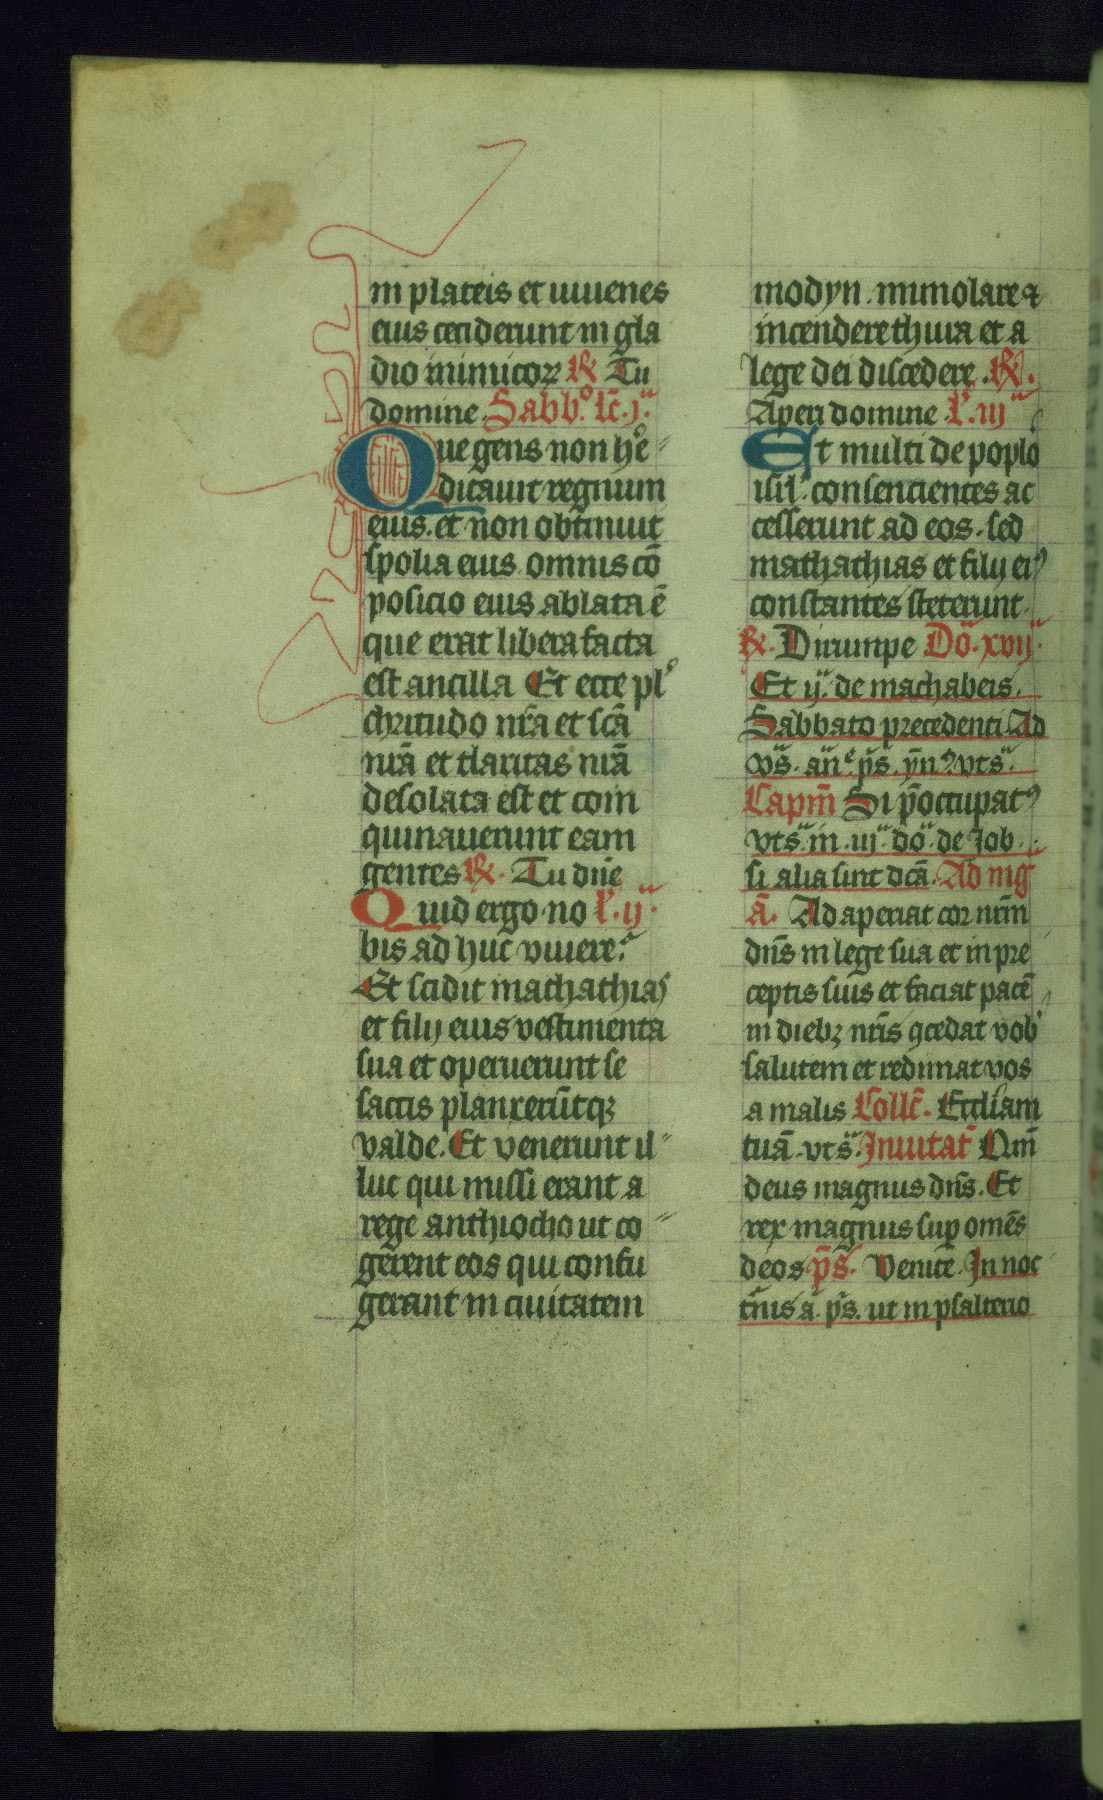 in plateis et iuuenes
eius ceciderunt in gla
dio inimicoꝝ ℟ Tu
domine. Sabb.º lc̄.j.ª
Que gens non he͛
ditauit regnum
eius. et non obtinuit
spolia eius. omnis cō
posicio eius ablata ē
que erat libera facta
est ancilla Et ecce pl
chritudo nr̄a et scā
nr̄a et claritas nr̄a
desolata est et coin
quinauerunt eam
gentes ℟. Tu dn̄e
Quid ergo no l͛.ij.ª
bis ad huc viuere.
Et scidit mathathias
et filij eius vestimenta
sua et operuerunt se
saccis planxerūtqꝫ
valde. Et venerunt il
luc qui missi erant a
rege anthiocho ut co
gerent eos qui confu
gerant in ciuitatem
modyn. immolare ⁊
incendere thura et a
lege dei discedere. ℟.
Aperi domine. l͛.iij.ª
Et multi de poplo
isrl͛. consencientes ac
cesserunt ad eos. sed
mathathias et filij eiꝰ
constantes steterunt.
℟. Dirumpe Dō. xvij.ª
Et ij.ª de machabeis.
Sabbato precedenti. Ad
vs̄. an͛. ps̄. yn͛. vts̄.
Capm̄ Si p̄occupatꝰ
vts̄. in. iij.ª do.ª de Job.
si alia sint dcā. Ad mg̅
ā. Adaperiat cor nrm̄
dn̄s in lege sua et in pre
ceptis suis et faciat pacē
in diebꝫ nr̄is ꝯcedat vob͛
salutem et redimat vos
a malis Collc̄. Eccliam
tuā. vts̄. Inuitat̄ Qm̄
deus magnus dn̄s. Et
rex magnus suꝑ omēs
deos ps̄. Venite. In noc
t̄nis ā. ps̄. ut in psalterio